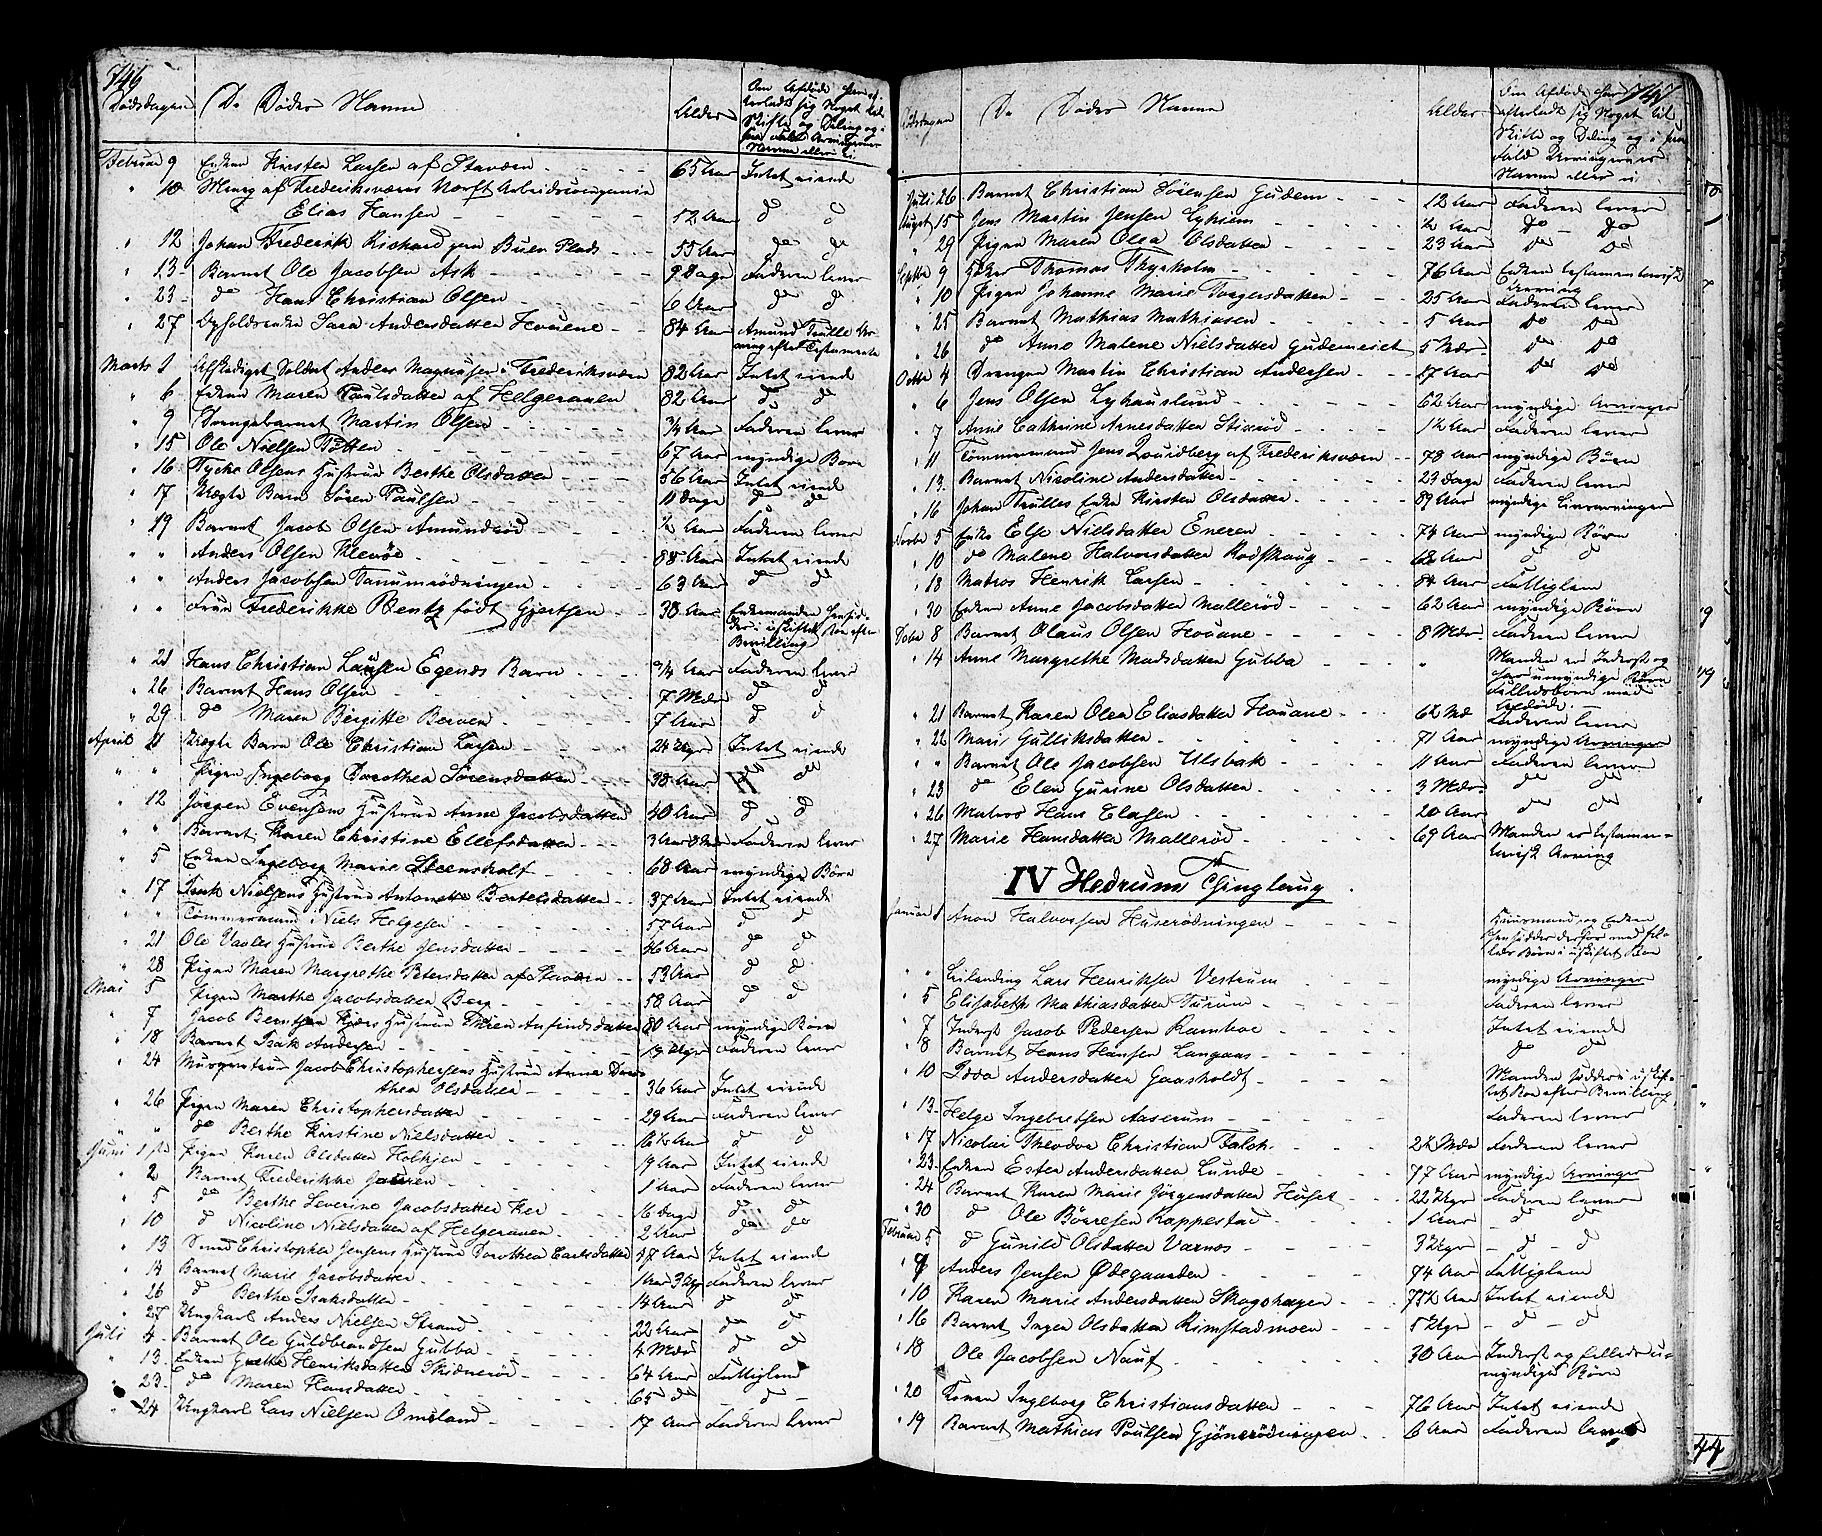 746
Dödsdagen De Dödes Navne Alder Om Afdöde har efterladt sig Noget til Skifte og Deling og i saa Fald Arvingernes Navne eller ei
Februar 9 Enken Kirsten Larsen af Stavern 65 Aar Intet eiende
" 10 af Frederiksværns Værft
Elias Hansen 52 Aar do do
" 12 Johan Frederik Richard Buen Plads 55 Aar do do
" 13 Barnet Ole Jacobsen Ask 9 Dage Faderen lever
" 23 do Hans Christian Olsen 6 Aar do do
" 27 Sara Andersdatter Hovene 84 Aar Amund Trulle Ar-
ving efter Testamente
Marts 1 Afskediget Soldat Anders Magnusen i Frederiksværn 82 Aar Intet eiende
" 6 Enken Maren Paulsdatter af Helgeraaen 82 Aar do do
" 9 Drengebarnet Martin Olsen 3/4 Aar Faderen lever
" 15 Ole Nielsen Tötten 67 Aar myndige Börn
" 16 Tycke Olsens Hustrue Berthe Olsdatter 56 Aar Intet eiende
" 17 Uægte Barn Sören Paulsen 11 Dage do do
" 19 Barnet Jacob Olsen Amundröd 1/2 Aar Faderen lever
" " Anders Olsen Kleröe 88 Aar Intet eiende
" " Anders Jacobsen Tanumrödningen 63 Aar do do
" " Frue Frederikke Rentz födt Gjertsen 38 Aar Enkemanden hensid-
der i uskiftet Boe efter
Bevilling
" 21 Hans Christian Laursen Egends Barn 3/4 Aar Faderen lever
" 26 Barnet Hans Olsen 7 Mdr do do
" 29 do Maren Birgitte Berven 7 Aar do do
April Uægte Barn Ole Christian Larsen 24 Uger Intet eiende
" " Pigen Ingeborg Dorothea Sörensdatter 38 Aar do do
" 12 Jörgen Evensens Hustrue Anne Jacobsdatter 40 Aar do do
" " Barnet Karen Christine Ellefsdatter 3 Aar 8 Mdr Faderen lever
" 5 Enken Ingeborg Marie Steensholt 68 Aar myndige Börn
" 17 Isak Nielsens Hustrue Antonette Bertelsdatter 37 Aar Intet eiende
" " Tömmermand Niels Helgesen 57 Aar do do
" 21 Ole Vasles Hustrue Berthe Jensdatter 46 Aar do do
" 28 Pigen Maren Margrethe Petersdatter af Stavern 53 Aar do do
Mai 5 Pigen Marthe Jacobsdatter Berg 58 Aar do do
" 7 Jacob Berntsen Kjærs Hustrue Thren Anfindsdatter 80 Aar myndige Börn
" 18 Barnet Isak Andersen 19 Uger Faderen lever
" 24 Jacob Christophersens Hustrue Anne Doro-
thea Olsdatter 36 Aar Intet eiende
" 26 Pigen Maren Christophersdatter 29 Aar Faderen lever
" " do Berthe Kirstine Nielsdatter 16½ Aar do do
Juni 1ste Pigen Karen Olsdatter Holkjen 19 Aar Intet eiende
" 2 Barnet Frederikke 1 Aar Faderen lever
" 5 do Berthe Severine Jacobsdatter Kei 16 Dage do do
" 10 do Nicoline Nielsdatter af Helgeraaen 2 Aar do do
" 13 Smed Christopher Jensens Hustrue Dorothea Carlsdatter 57 Aar Intet eiende
" 14 Barnet Marie Jacobsdatter 1 Aar 3 Uger Faderen lever
" 26 do Berthe Isaksdatter 14 Aar do do
" 27 Ungkarl Anders Nielsen Strand 22 Aar do do
Juli 4 Barnet Ole Guldbrandsen Gubba 4 Mdr do do
" 13 Enken Henriksdatter Skidneröd 64 Aar Fattiglem
" 23 do Maren Hansdatter 65 do - do -
" 24 Ungkarl Lars Nielsen Omsland 17 Aar Faderen lever
747
Dödsdagen De Dödes Navne Alder Om Afdöde har efterladt sig Noget til Skifte og Deling og i saa Fald Arvingernes Navne eller ei
Juli 26 Barnet Christian Sörensen Gudem 12 Aar Faderen lever
August 15 Jens Martin Jensen 1/2 Aar do - do
" 29 Pigen Maren Olea Olsdatter 23 Aar do do
Septbr 9 Thomas Thysholm 76 Aar Enken testamentarisk
Arving
" 10 Pigen Johanne Marie Torgersdatter 25 Aar Faderen lever
" 25 Barnet Mathias Mathiasen 5 Aar do do
" 26 do Anne Malene Nielsdatter Gudemeiet 5 Mdr do do
Octbr 4 Drengen Martin Christian Andersen 17 Aar do do
" 6 Jens Olsen Lyhauslund 62 Aar myndige Arvinger
" 7 Anne Cathrine Arnesdatter Stixröd 12 Aar Faderen lever
" 11 Tömmermand Jens Qvidberg af Frederiksværn 78 Aar myndige Börn
" 13 Barnet Nicoline Andersdatter 23 Dage Faderen lever
" 16 Johan Trulles Enke Kirsten Olsdatter 89 Aar myndige Livsarvinger
Novbr 5 Enke Else Nielsdatter Eneren 74 Aar myndige Börn
" 10 do Malene Halvorsdatter Rodskaug 68 Aar do do
" 18 Matros Henrik Larsen 84 Aar Fattiglem
" 30 Enken Anne Jacobsdatter Malleröd 62 Aar myndige Börn
Decbr 8 Barnet Olaus Olsen Hovane 8 Mdr Faderen lever
" 14 Anne Margrethe Madsdatter Gubba " Manden er Inderst og
har umyndige Börn
Fælledsbörn med
Afdöde
" 21 Barnet Karen Olea Eliasdatter Hovane 6½ Md Faderen lever
" 22 Marie Gulliksdatter 71 Aar myndige Arvinger
" " Barnet Ole Jacobsen Ulsbak 11 Aar Faderen lever
" 23 do Elen Gurine Olsdatter 3 Mdr do do
" 26 Matros Hans Clasen 20 Aar do do
" 27 Marie Hansdatter Malleröd 69 Aar Manden er testamen-
tarisk Arving
IV Hedrum Thinglaug
Januar 1 Aron Halvorsen Huserödningen Huusmand og Enken
hensidder derfor med fæl-
leds Börn i uskiftet Boe
" " Leilending Lars Henriksen Vestrum myndige Arvinger
" 5 Elisabeth Mathiasdatter Furum Faderen lever
" 7 Inderst Jacob Pedersen Kamboe Intet eiende
" 8 Barnet Hans Hansen Langaas do do
" 10 Idda Andersdatter Gaasholdt Manden sidder i uskif-
tet Boe efter Bevilling
" 13 Helge Ingebretsen Aaserum Faderen lever
" 17 Nicolai Theodor Christian Falch 2½ Mdr Faderen lever
" 23 Enken Ester Andersdatter Lunde 77 Aar myndige Arvinger
" 24 Barnet Karen Marie Jörgensdatter Huset 22 Uger Faderen lever
" 30 do Ole Börresen Kappestad 1 Aar do do
Februar 5 do Gunild Olsdatter Varnes 3 Uger - do - do
" Anders Jensen Ödegaarden 74 Aar Fattiglem
" 10 Karen Marie Andersdatter Skogshagen 77½ Aar Intet eiende
" 16 Barnet Inger Olsdatter Rimstadmoen 5 Uger - do - do
" 18 Ole Jacobsen Nauf 30 Aar Inderst og fælleds u-
myndige Börn
" 20 Konen Ingeborg Christiansdatter 76 Aar Intet eiende
" 19 Barnet Mathias Poulsen Gjönerödningen 6 Aar Faderen lever
44